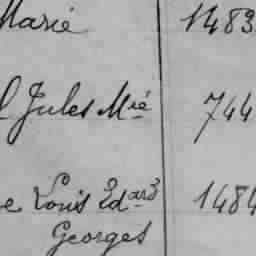 Marie 1483
Jules Mie 744
e Louis Edard 1484
Georges